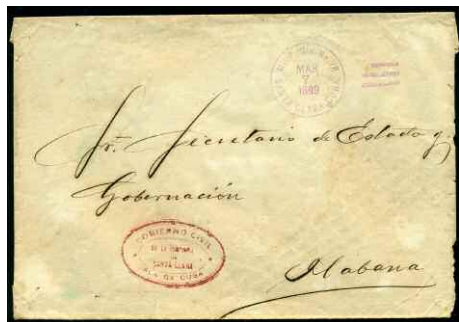 MAR
7
1899
Sr. Secretario de Estado y
Gobernación
GOBIERNO CIVIL
DE LA PROVINCIA
DE
SANTA CLARA
ISLA DE CUBA
Habana